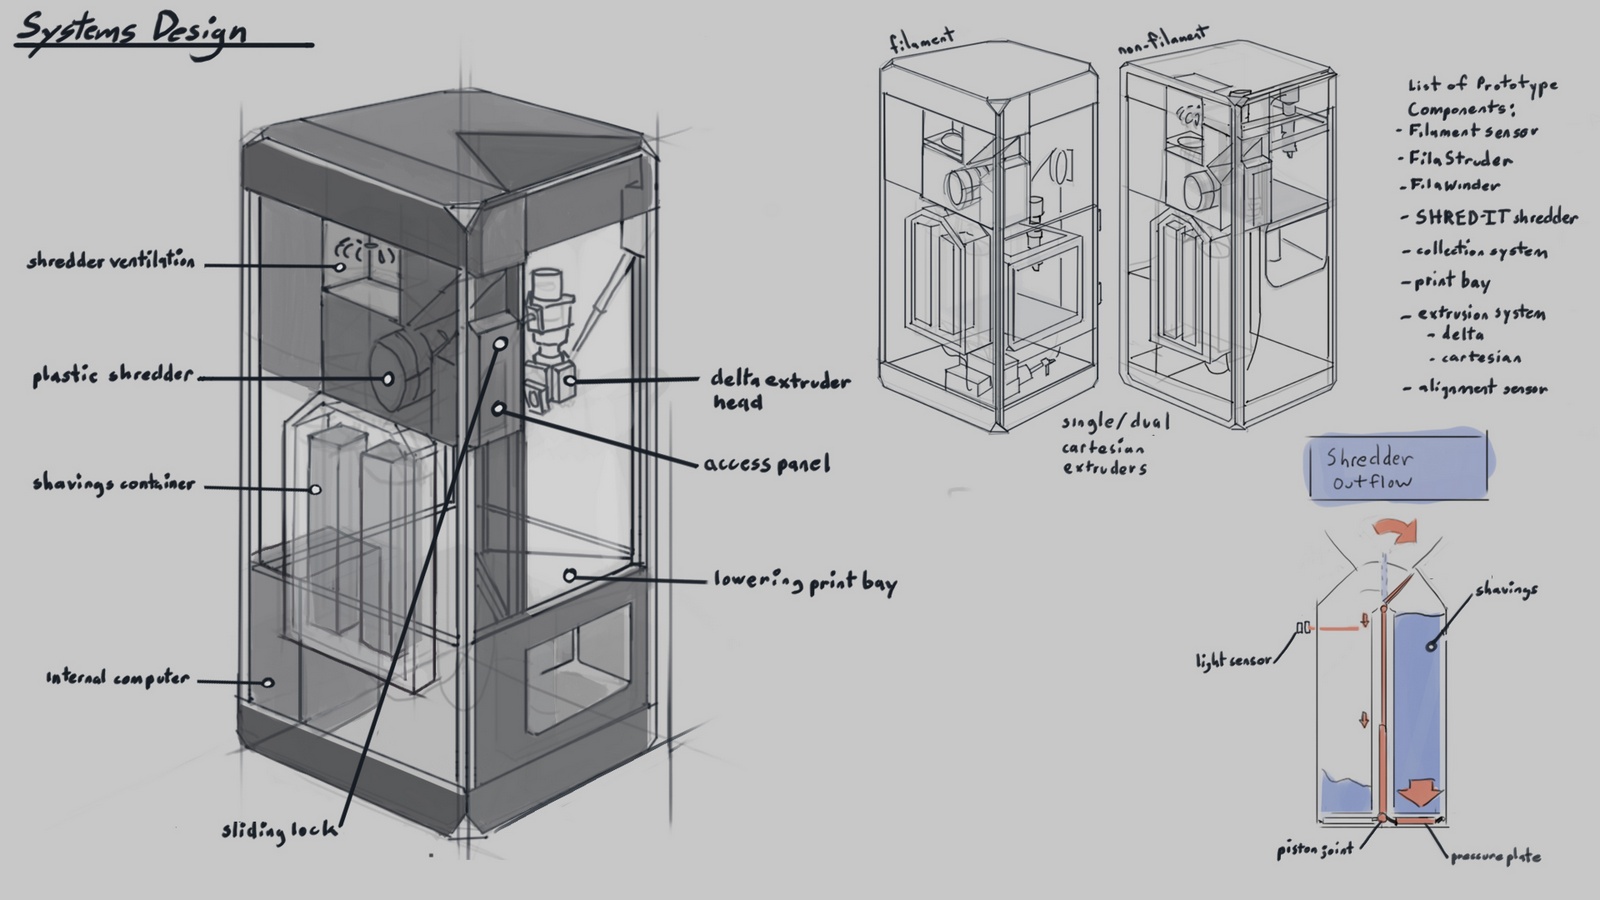 Systems Design
shredder ventilation
plastic shredder
shavings container
internal computer
sliding lock
delta extruder
head
access panel
lowering print bay
filament
non-filament
single/dual
cartesian
extruders
List of Prototype
Components:
- Filament sensor
- FilaStruder
- FilaWinder
- SHRED-IT shredder
- collection system
- print bay
- extrusion system
- delta
- cartesian
- alignment sensor
Shredder
Outflow
shavings
light sensor
piston joint
pressure plate